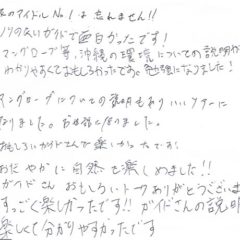 のアイドルNo.1は忘れません!!
ノリのよいガイドで面白かったです!
マングローブ等、沖縄の環境についての説明が
わかりやすくておもしろかったです。勉強になりました!
マングローブについての説明もあり いいツアーに
なりました。お世話になりました。
おもしろいガイドさんで楽しかったです。
おだやかに自然を楽しめました!!
ガイドさん おもしろい トーク ありがとうございま
すっごく楽しかったです!! ガイドさんの説明
楽しくて分かりやすかったです